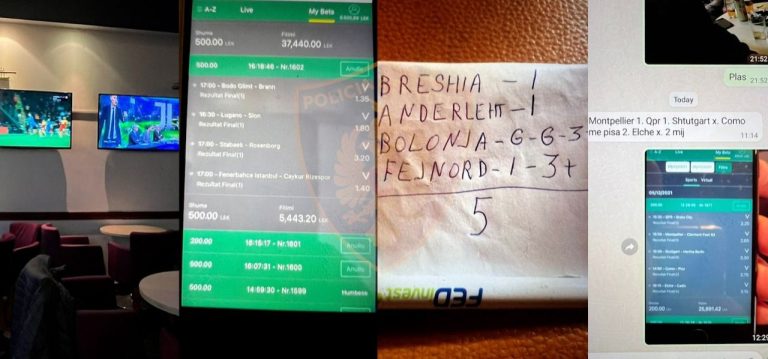 A-Z
Live
My Bets
Shuma
Fitimi
500.00 LEK
37,440.00 LEK
500.00
16:18:46 - Nr.1602
Anullo
17:00 - Bodo Glimt - Brann
V
Rezultat Final(1)
1.35
16:30 - Lugano - Sion
V
Rezultat Final(1)
1.80
17:00 - Stabaek - Rosenborg
V
Rezultat Final(1)
3.20
17:00 - Fenerbahce Istanbul - Caykur Rizespor
V
Rezultat Final(1)
1.40
Shuma
Fitimi
500.00 LEK
5,443.20 LEK
200.00
16:16:17 - Nr.1601
Anullo
500.00
16:07:31 - Nr.1600
Anullo
500.00
14:59:30 - Nr.1599
Humbese
POLICIA
BRESHIA - 1
ANDERLEHT - 1
BOLONJA - G - G - 3
FEJNORD - 1 - 3+
5
FED invest
21:52
Plas
21:52
Today
Montpellier 1. Qpr 1. Shtutgart x. Como
me pisa 2. Elche x. 2 mij
11:14
A-Z
Live
My Bets
Sports
Virtual
05/12/2021
200.00
12:29